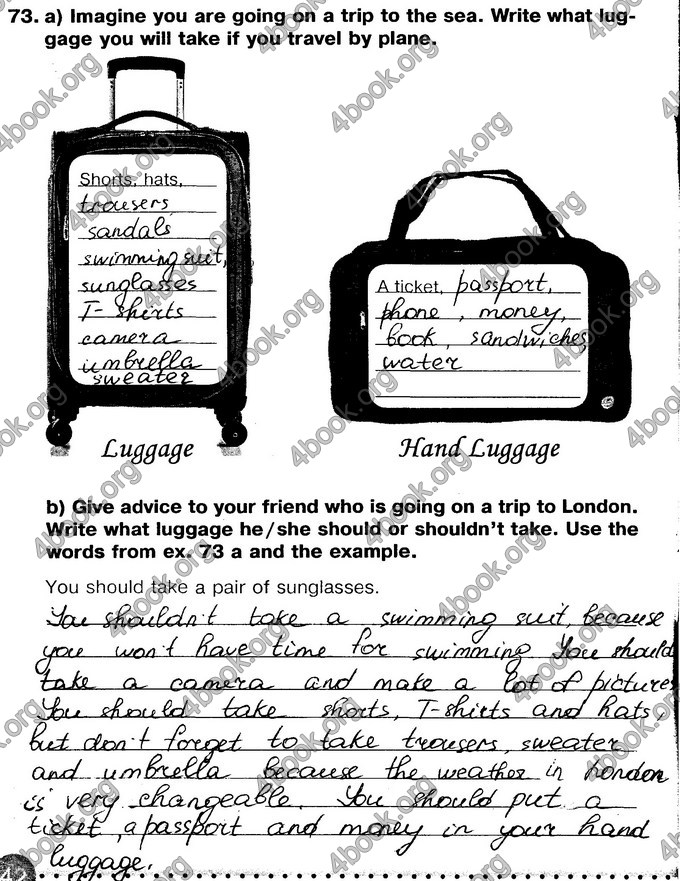 73. a) Imagine you are going on a trip to the sea. Write what lug-
gage you will take if you travel by plane.
Shorts, hats,
trousers
sandals
swimming suit,
sunglasses
T-shirts
camera
umbrella
sweater
Luggage
A ticket, passport,
phone, money,
book, sandwiches,
water
Hand Luggage
b) Give advice to your friend who is going on a trip to London.
Write what luggage he/she should or shouldn't take. Use the
words from ex. 73 a and the example.
You should take a pair of sunglasses.
You shouldn't take a swimming suit, because
you won't have time for swimming. You should
take a camera and make a lot of pictures
You should take shorts, T-shirts and hats,
but don't forget to take trousers, sweater
and umbrella because the weather in London
is very changeable. You should put a
ticket, a passport and money in your hand
luggage.
42
4book.org